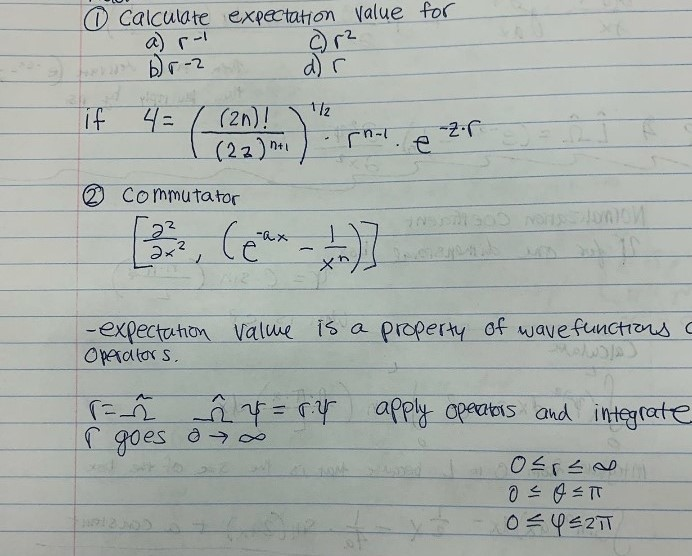 ① Calculate expectation value for
a) r⁻¹ c) r²
b) r⁻² d) r
if Ψ = ( (2n)! / (2z)ⁿ⁺¹ )^1/2 · rⁿ⁻¹ · e^-z·r
② Commutator
[ ∂²/∂x² , ( e^-ax - 1/xⁿ ) ]
-expectation value is a property of wavefunctions
operators.
r = Ω̂ Ω̂ Ψ = r·Ψ apply operators and integrate
r goes 0 → ∞
0 ≤ r ≤ ∞
0 ≤ θ ≤ π
0 ≤ φ ≤ 2π